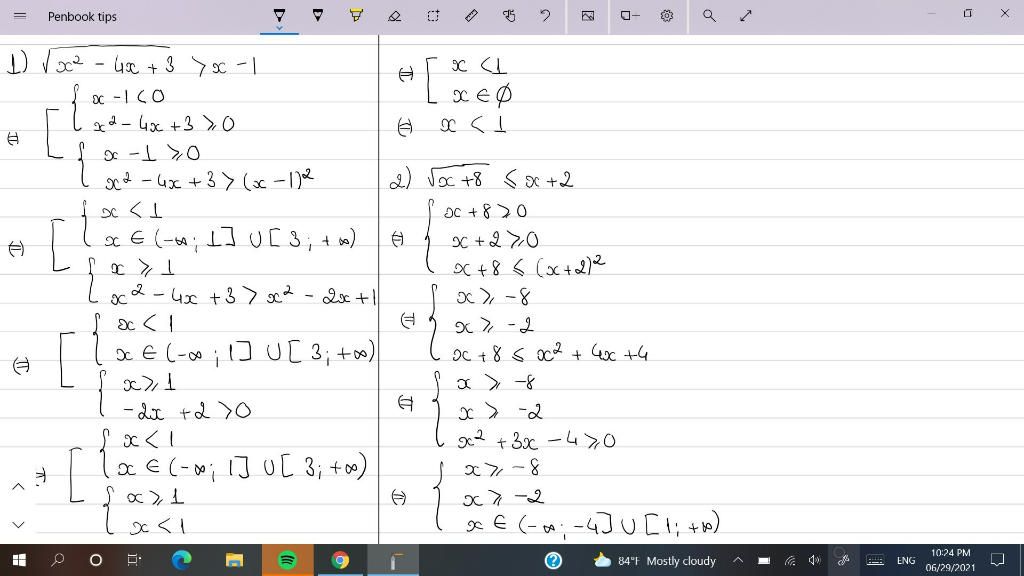 Penbook tips
1) √(x² - 4x + 3) > x - 1
x - 1 < 0
⇔ x² - 4x + 3 ⩾ 0
x - 1 ⩾ 0
x² - 4x + 3 > (x - 1)²
x < 1
⇔ x ∈ (-∞; 1] ∪ [3; +∞)
x ⩾ 1
x² - 4x + 3 > x² - 2x + 1
x < 1
⇔ x ∈ (-∞; 1] ∪ [3; +∞)
x ⩾ 1
-2x + 2 > 0
x < 1
⇔ x ∈ (-∞; 1] ∪ [3; +∞)
x ⩾ 1
x < 1
⇔ x < 1
x ∈ ∅
⇔ x < 1
2) √(x + 8) ⩽ x + 2
x + 8 ⩾ 0
⇔ x + 2 ⩾ 0
x + 8 ⩽ (x + 2)²
x ⩾ -8
⇔ x ⩾ -2
x + 8 ⩽ x² + 4x + 4
x ⩾ -8
⇔ x ⩾ -2
x² + 3x - 4 ⩾ 0
x ⩾ -8
⇔ x ⩾ -2
x ∈ (-∞; -4] ∪ [1; +∞)
84°F Mostly cloudy
ENG
10:24 PM
06/29/2021